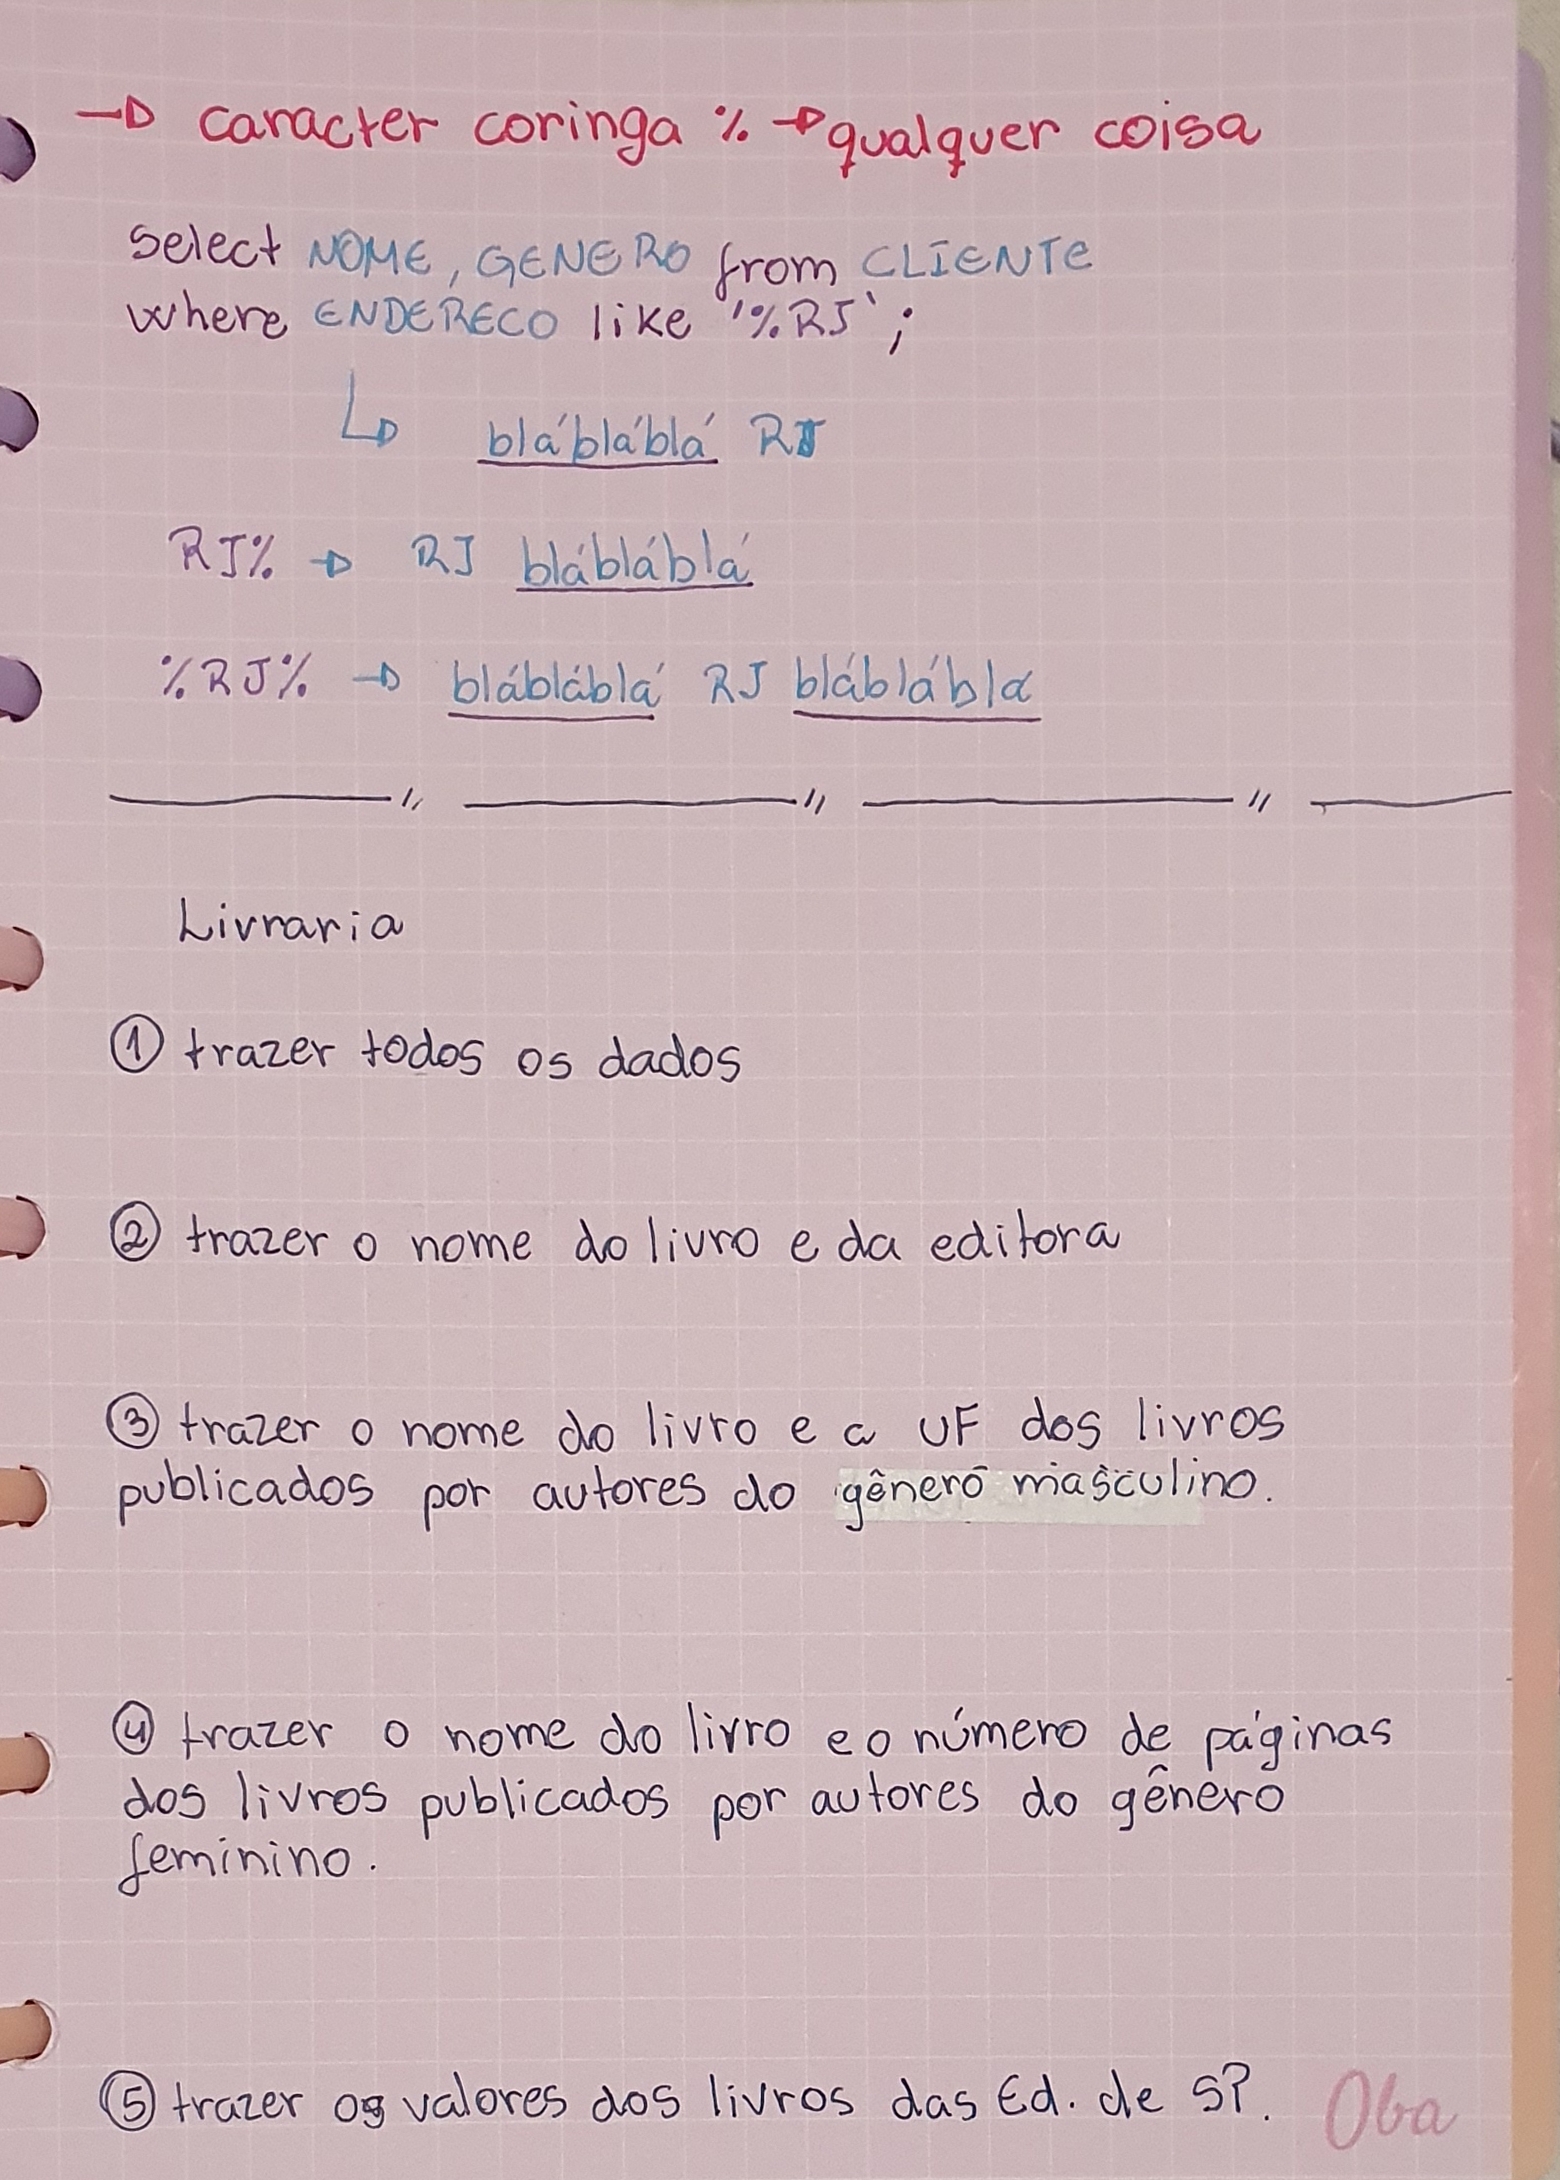 → caracter coringa % → qualquer coisa
Select NOME, GENERO from CLIENTE
where ENDERECO like '%RJ';
↳ bláblábla RJ
RJ% → RJ bláblábla
%RJ% → bláblábla RJ bláblábla
Livraria
① trazer todos os dados
② trazer o nome do livro e da editora
③ trazer o nome do livro e a UF dos livros
publicados por autores do gênero masculino.
④ trazer o nome do livro e o número de páginas
dos livros publicados por autores do gênero
feminino.
⑤ trazer os valores dos livros das Ed. de SP. Oba